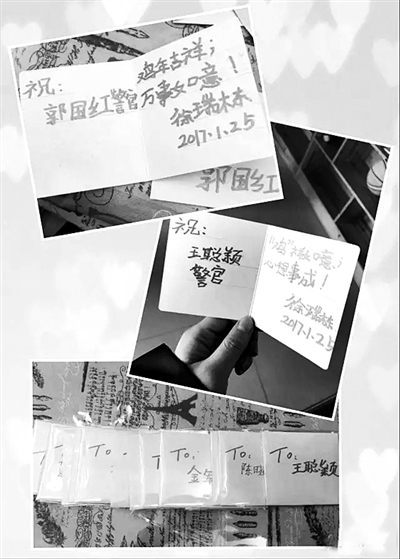 祝:
郭国红警官
鸡年吉祥;
万事如意!
徐瑞林
2017.1.25
郭国红
祝:
王聪颖
警官
鸡年如意;
心想事成!
徐瑞林
2017.1.25
To:
To:
金
To:
陈
To:
王聪颖